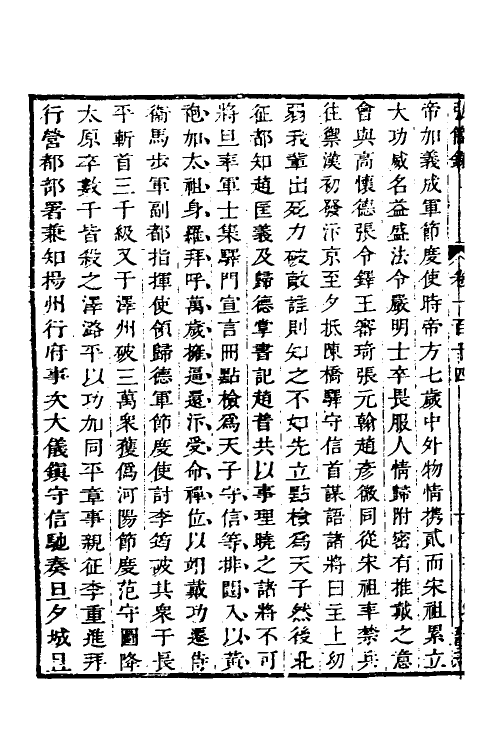 帝加義成軍節度使時帝方七歲中外物情携貳而宋祖累立
大功威名益盛法令嚴明士卒畏服人情歸附密有推戴之意
會與高懷德張令鐸王審琦張元翰趙彥徽同從宋祖率禁兵
往禦漢初發汴京至夕抵陳橋驛守信首謀語諸將曰主上幼
弱我輩出死力破敵誰則知之不如先立點檢為天子然後北
征都知趙匡義及歸德掌書記趙普共以事理曉之諸將不可
將旦率軍士集驛門宣言冊點檢為天子守信等排闥入以黃
袍加太祖身羅拜呼萬歲擁逼還汴受命禪位以翊戴功遷侍
衛馬步軍副都指揮使領歸德軍節度使討李筠破其衆于長
平斬首三千級又于澤州破三萬衆獲僞河陽節度范守圖降
太原卒數千皆殺之澤潞平以功加同平章事親征李重進拜
行營都部署兼知揚州行府事次大儀鎮守信馳奏旦夕城旦